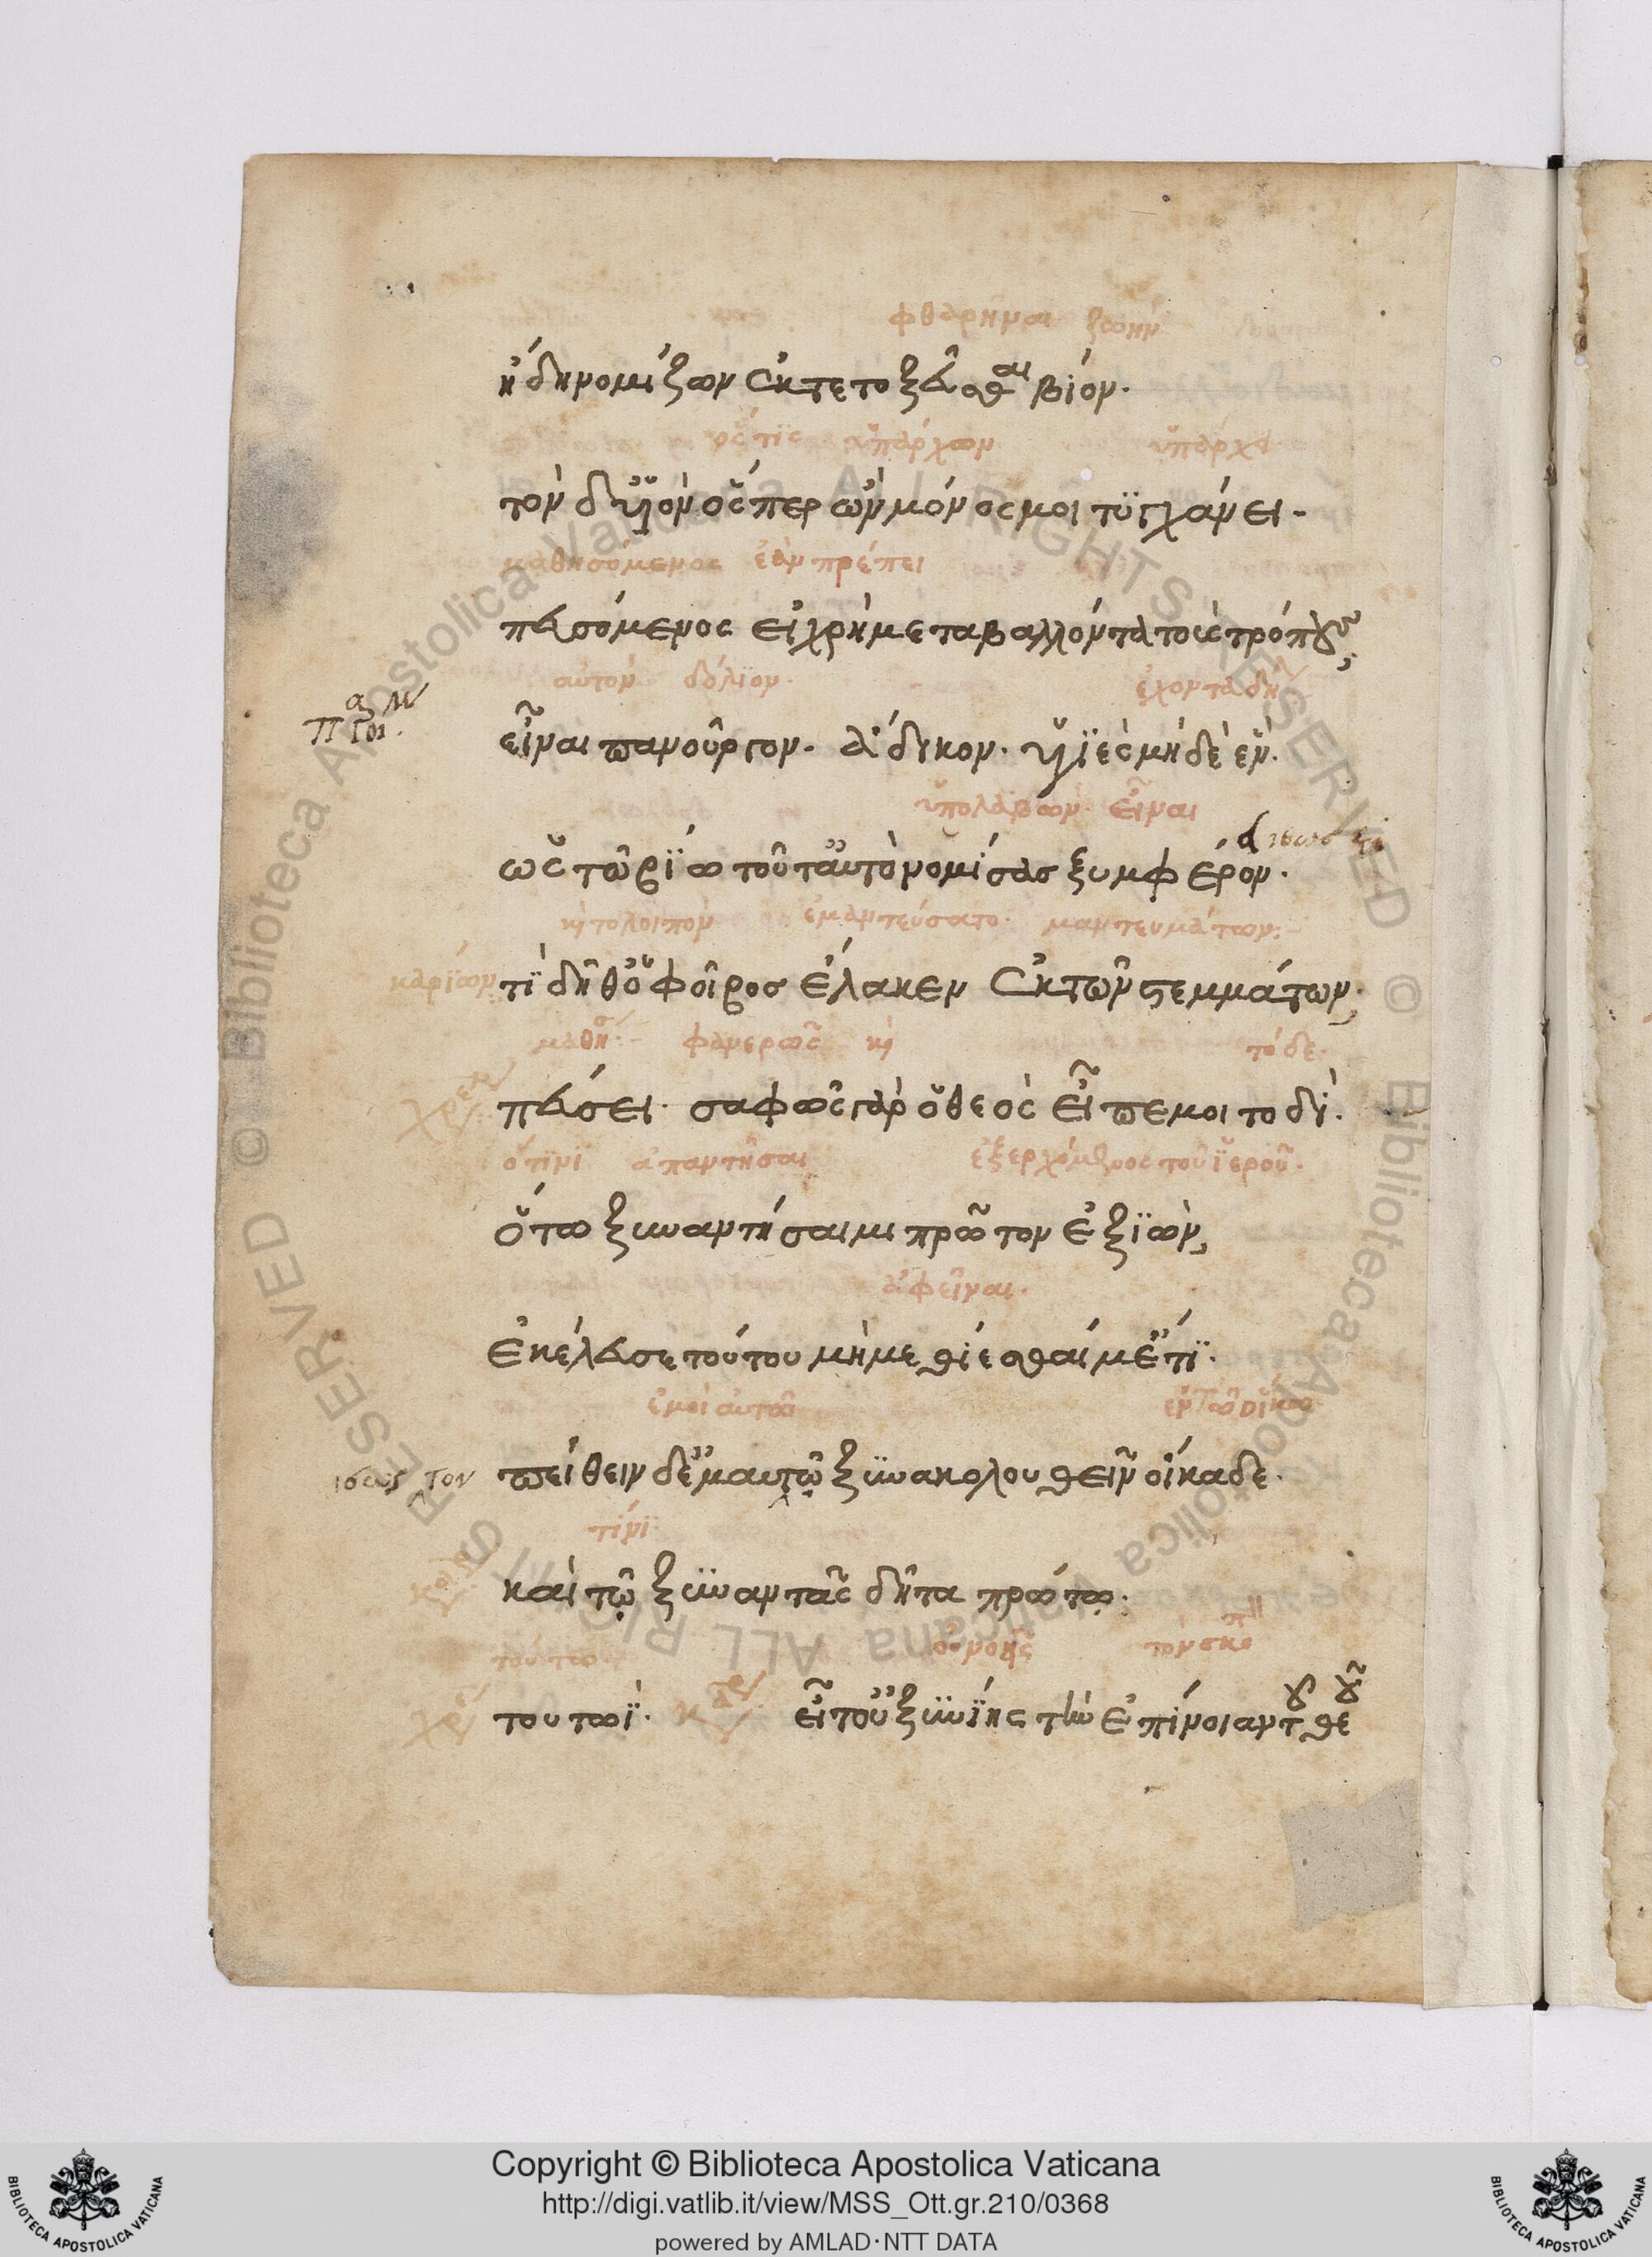 φθαρῆναι ζωήν
ἤδη νομίζων ἐκτετοξεῦσθαι βίον.
ὅστις ὑπάρχων ὑπάρχει
τὸν δ' υἱὸν ὅσπερ ὢν μόνος μοι τυγχάνει.
μαθησόμενος ἐὰν πρέπει
πευσόμενος εἰ χρὴ μεταβαλλόντα τοὺς τρόπους
αὐτὸν δόλιον. ἔχοντα δη
εἶναι πανοῦργον. ἄδικον. ὑγιὲς μηδὲ ἕν.
ὑπολαβών. εἶναι
ὡς τῷ βίῳ τοῦτ' αὐτὸ νομίσας ξυμφέρον.
ἐμαντεύσατο. μαντευμάτων:
καρίων τί δῆθ' ὁ φοῖβος ἔλακεν ἐκ τῶν στεμμάτων;
φανερῶς τόδε.
πεύσει. σαφῶς γὰρ ὁ θεὸς εἶπέ μοι τοδί.
ᾧτινι ἀπαντῆσαι ἐξερχόμενος τοῦ ἱεροῦ.
ὅτῳ ξυναντήσαιμι πρῶτον ἐξιών,
ἀφεῖναι.
ἐκέλευσε τούτου μὴ μεθίεσθαί μ' ἔτι.
ἐμοὶ αὐτῷ ἐν τῷ οἴκῳ
ἴσως τον πείθειν δ' ἐμαυτῷ ξυνακολουθεῖν οἴκαδε.
τίνι
καὶ τῷ ξυναντᾷς δῆτα πρώτῳ.
τούτῳ τὸν σκοπ
τουτωί. εἶτ' οὐ ξυνίης τὴν ἐπίνοιαν τοῦ θεοῦ
Copyright © Biblioteca Apostolica Vaticana
http://digi.vatlib.it/view/MSS_Ott.gr.210/0368
powered by AMLAD·NTT DATA